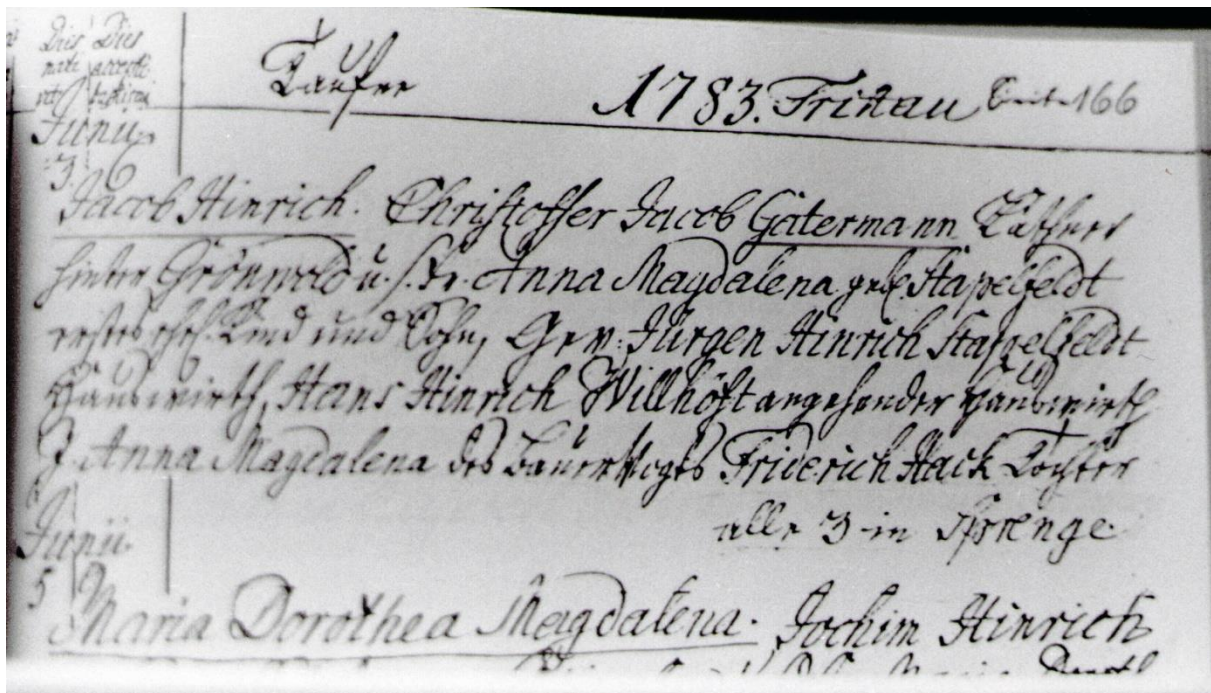 Dies Dies
nati accepti
baptism
Taufen 1783. Trittau Seite 166
Junii
3. 6
Jacob Hinrich. Christoffer Jacob Gätermann Käthner
hinter Grönwold u. s. Fr. Anna Magdalena geb. Stapelfeldt
erstes ehel. Kind und Sohn, Gev: Jürgen Hinrich Stapelfeldt
Hauswirth, Hans Hinrich Willhöft angehender Hauswirth
J. Anna Magdalena des Bauer Vogts Friderich Hack Tochter
alle 3 in Sprenge
Junii
5
Maria Dorothea Magdalena. Jochim Hinrich